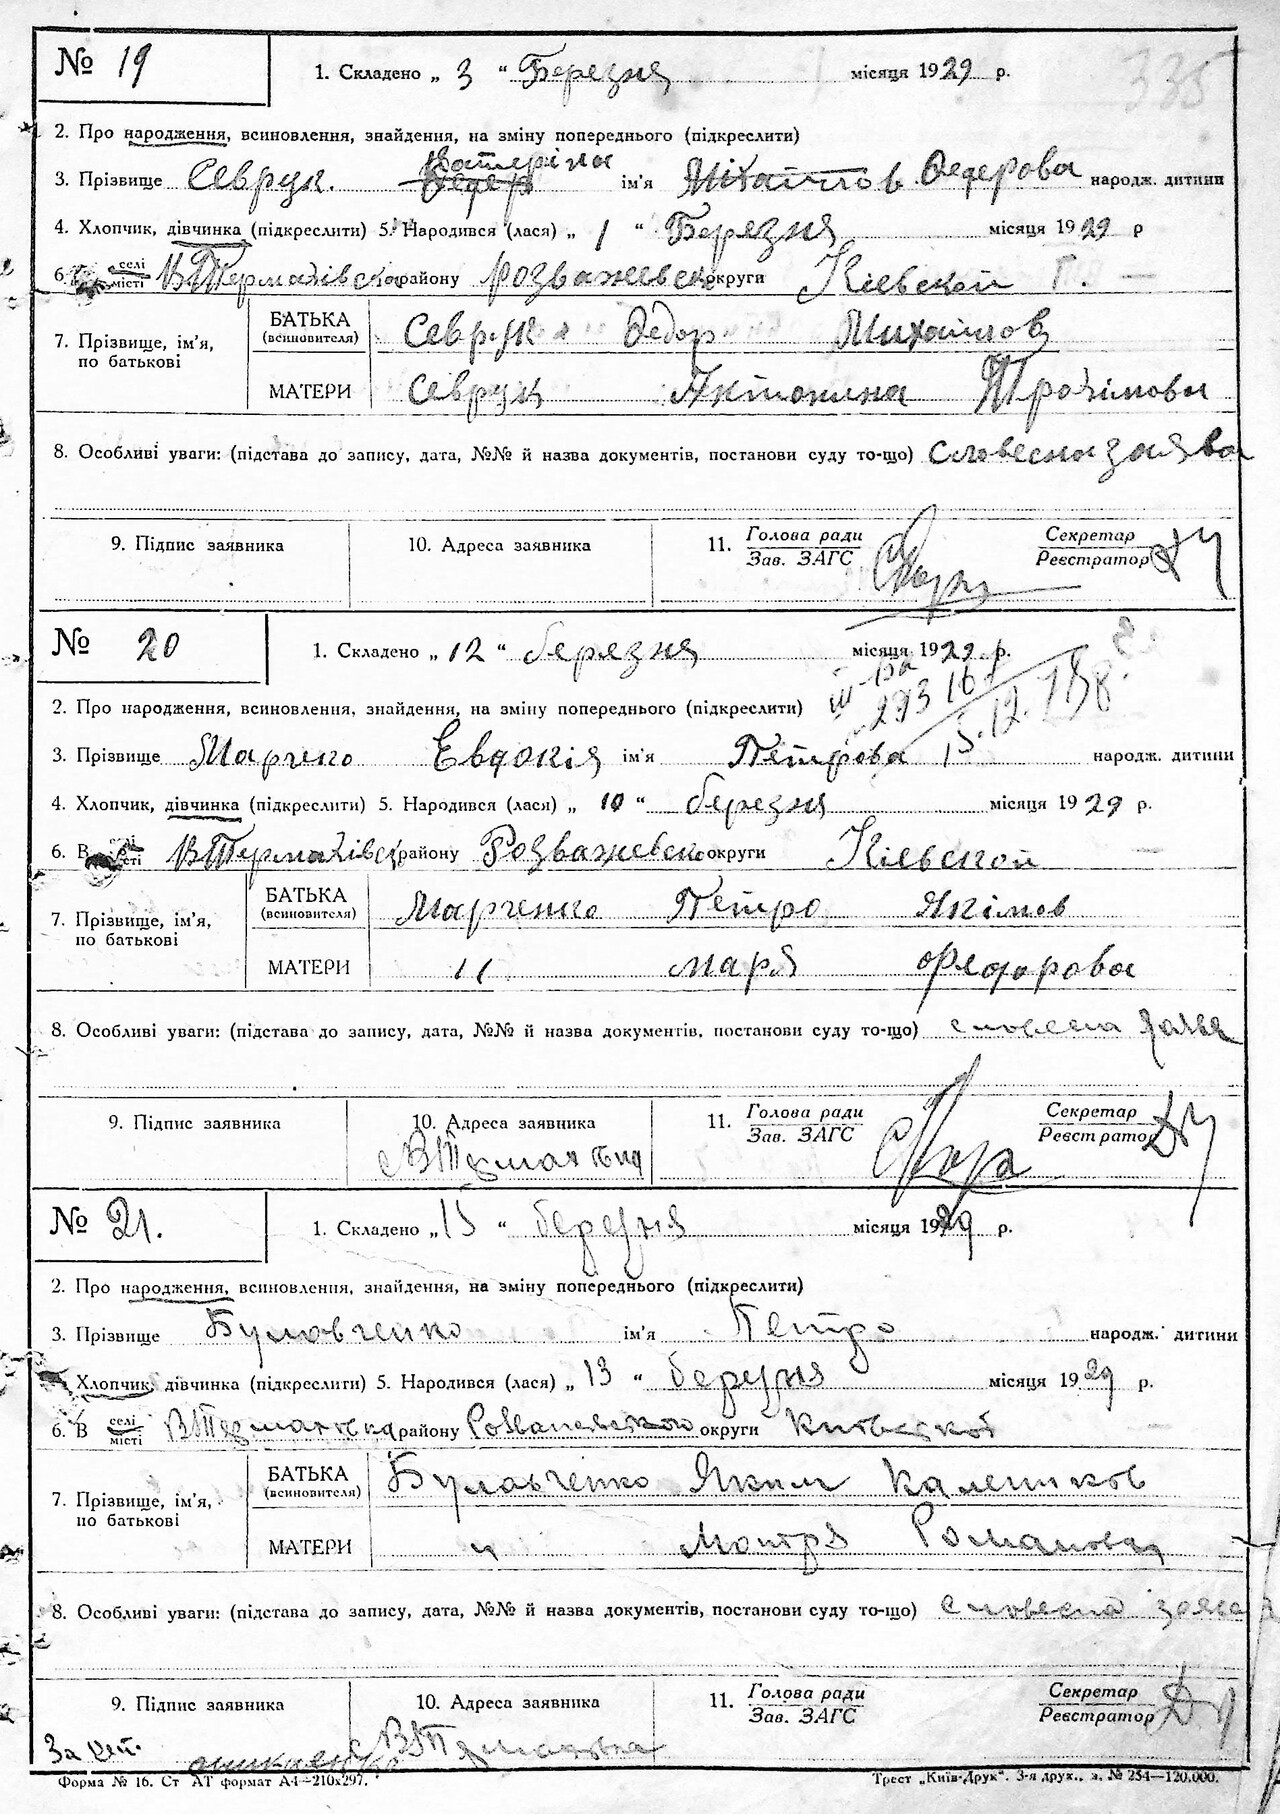 335
№ 19
1. Складено „ 3 “ Березня місяця 1929 р.
2. Про народження, всиновлення, знайдення, на зміну попереднього (підкреслити)
Катеріна
3. Прізвище Севрук. Федер ім'я Міхайлов Федерова народж. дитини
4. Хлопчик, дівчинка (підкреслити) 5. Народився (лася) „ 1 “ Березня місяця 1929 р
6. В селі/місті В Термахівка району Розважевско округи Кіевской Г.
7. Прізвище, ім'я, по батькові
БАТЬКА (всиновителя) Севрук Федор Михайлов
МАТЕРИ Севрук Антонина Трохімова
8. Особливі уваги: (підстава до запису, дата, №№ й назва документів, постанови суду то-що) словесна заява
9. Підпис заявника 10. Адреса заявника 11. Голова ради / Зав. ЗАГС Секретар / Реєстратор
№ 20
1. Складено „ 12 “ березня місяця 1929 р.
2. Про народження, всиновлення, знайдення, на зміну попереднього (підкреслити)
3. Прізвище Марченко Евдокія ім'я Петрова народж. дитини
4. Хлопчик, дівчинка (підкреслити) 5. Народився (лася) „ 10 “ березня місяця 1929 р.
6. В селі/місті В Термахівс району Розважевско округи Кіевской
7. Прізвище, ім'я, по батькові
БАТЬКА (всиновителя) Марченко Петро Якімов
МАТЕРИ 11 Маря Федорова
8. Особливі уваги: (підстава до запису, дата, №№ й назва документів, постанови суду то-що) словесна заява
9. Підпис заявника 10. Адреса заявника 11. Голова ради / Зав. ЗАГС Секретар / Реєстратор
с В Термахівка
№ 21.
1. Складено „ 15 “ березня місяця 1929 р.
2. Про народження, всиновлення, знайдення, на зміну попереднього (підкреслити)
3. Прізвище Булавченко ім'я Петро народж. дитини
Хлопчик, дівчинка (підкреслити) 5. Народився (лася) „ 13 “ березня місяця 1929 р.
6. В селі/місті В Термахівка району Розважевського округи Київской
7. Прізвище, ім'я, по батькові
БАТЬКА (всиновителя) Булавченко Яким Калеников
МАТЕРИ " Мотря Романова
8. Особливі уваги: (підстава до запису, дата, №№ й назва документів, постанови суду то-що) словесна заява
9. Підпис заявника 10. Адреса заявника 11. Голова ради / Зав. ЗАГС Секретар / Реєстратор
с В Термахівка
Форма № 16. Ст АТ формат А4—210х297. Трест „Київ-Друк“. 3-я друк., з. № 254—120.000.